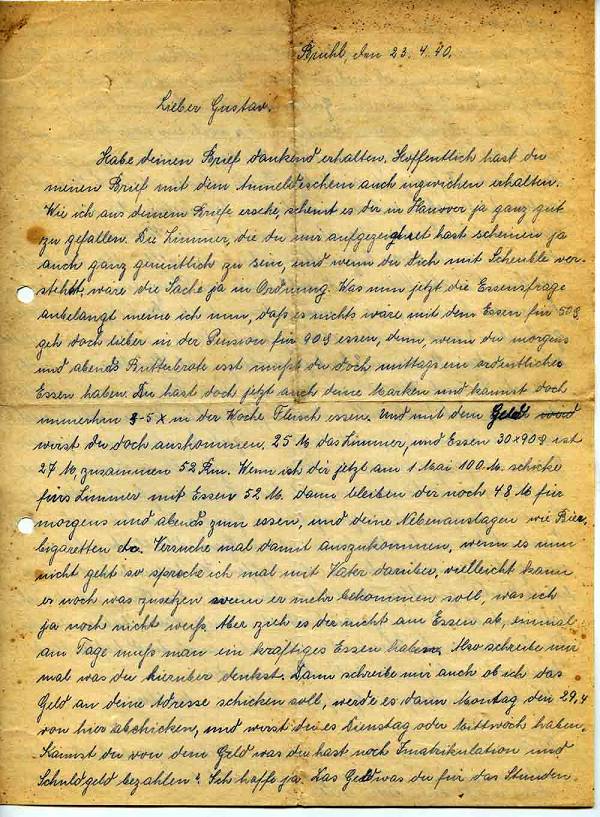 Brühl, den 23.4.40.
Lieber Gustav.
Habe deinen Brief dankend erhalten. Hoffentlich hast du
meinen Brief mit dem Anmeldeschein auch inzwichen erhalten.
Wie ich aus deinem Briefe ersehe, scheint es dir in Hanover ja ganz gut
zu gefallen. Die Zimmer, die du mir aufgezeichnet hast scheinen ja
auch ganz gemütlich zu sein, und wenn du dich mit Scheuble ver-
stehst, wäre die Sache ja in Ordnung. Was nun jetzt die Essensfrage
anbelangt meine ich nun, daß es nichts wäre mit dem Essen für 50 ₰
geh doch lieber in der Pension für 90 ₰ essen, denn, wenn du morgens
und abends Butterbrote esst mußt du doch mittags ein ordentliches
Essen haben. Du hast doch jetzt auch deine Marken und kannst doch
immerhin 3-5 x in der Woche Fleisch essen. Und mit dem Geld
wirst du doch auskommen. 25 M das Zimmer, und Essen 30x90 ₰ ist
27 M, zusammen 52 Rm. Wenn ich dir jetzt am 1 Mai 100 M. schicke
fürs Zimmer mit Essen 52 M. dann bleiben dir noch 48 M für
morgens und abends zum essen, und deine Nebenauslagen wie Bier,
Cigaretten etc. Versuche mal damit auszukommen, wenn es nun
nicht geht so spreche ich mal mit Vater darüber, vielleicht kann
er noch was zusetzen wenn er mehr bekommen soll, was ich
ja noch nicht weiß. Aber zieh es dir nicht am Essen ab, einmal
am Tage muß man ein kräftiges Essen haben. Also schreibe mir
mal was du hierüber denkst. Dann schreibe mir auch ob ich das
Geld an deine Adresse schicken soll, werde es dann Montag den 29.4
von hier abschicken, und wirst du es Dienstag oder Mittwoch haben.
Kannst du von dem Geld was du hast noch Imatrikulation und
Schuldgeld bezahlen? Ich hoffe ja. Das Geld was du für das Stunden-